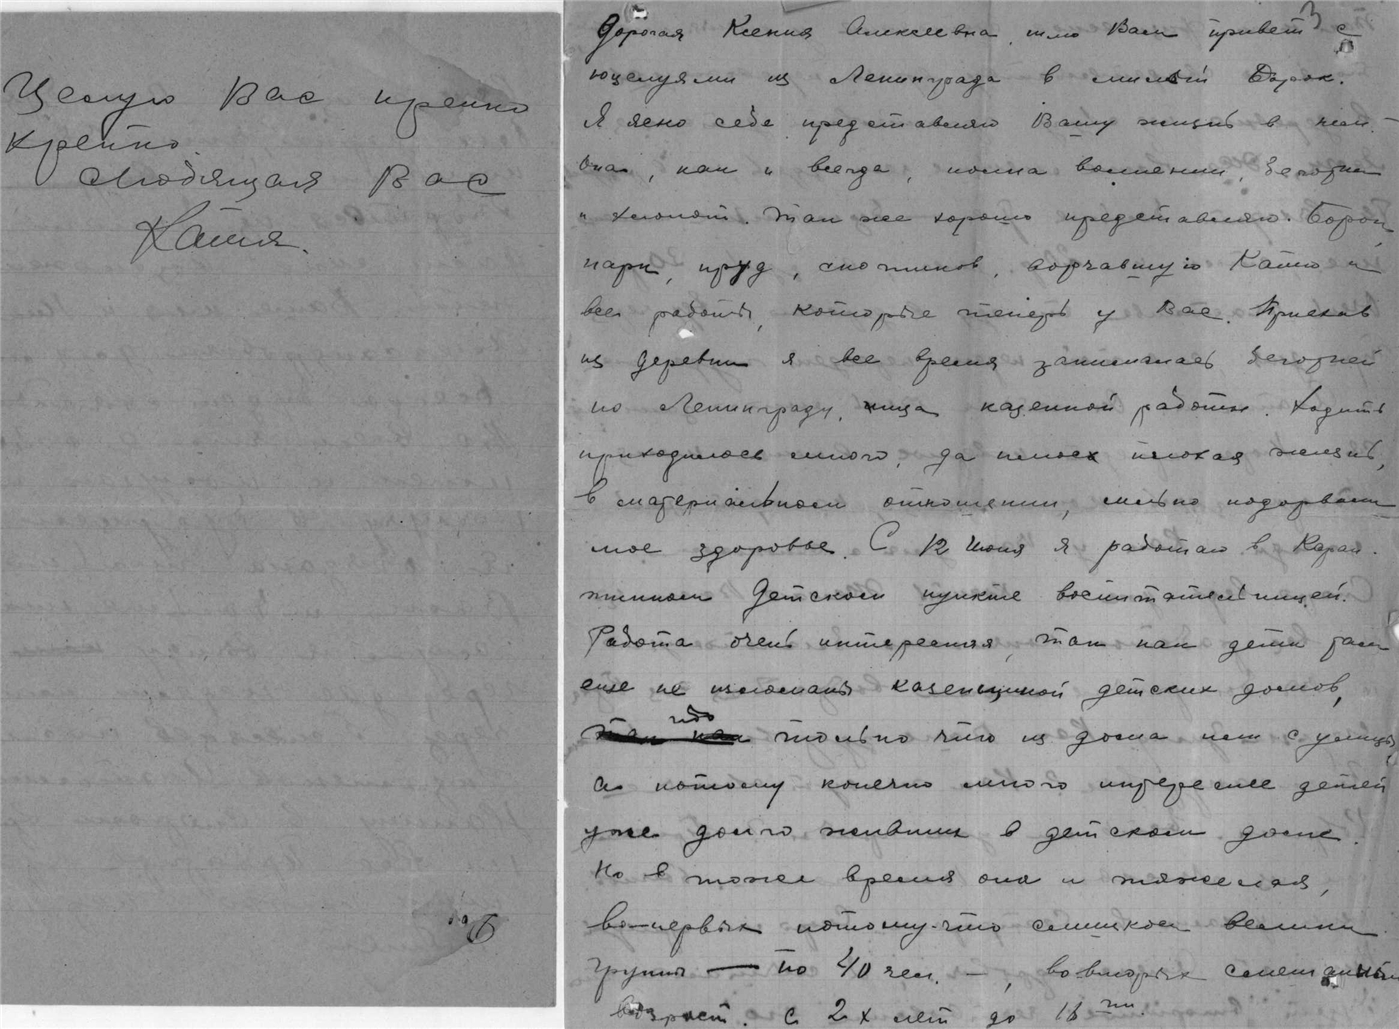 Целую Вас крепко
крепко.
Любящая Вас
Катя.
Дорогая Ксения Алексеевна, шлю Вам привет с
поцелуями из Ленинграда в милый Борок.
Я ясно себе представляю Вашу жизнь в нем.
Она, как и всегда, полна волнений, беготни
и хлопот. Так же хорошо представляю Борок,
парк, пруд, скотников, ворчавшую Катю и
все работы, которые теперь у Вас. Приехав
из деревни я все время занималась беготней
по Ленинграду, ища казенной работы. Ходить
приходилось много, да плюс плохая жизнь,
в материальном отношении, сильно подорвали
мое здоровье. С 12 Июня я работаю в Каран-
тинном Детском пункте воспитательницей.
Работа очень интересная, так как дети там
еще не изломаны казенщиной детских домов,
ибо
только что из дома или с улицы,
а потому конечно много интереснее детей
уже долго живших в детском доме.
Но в тоже время она и тяжелая,
во-первых потому-что слишком велики
группы — по 40 чел. —, во вторых смешанный
возраст. с 2х лет до 16